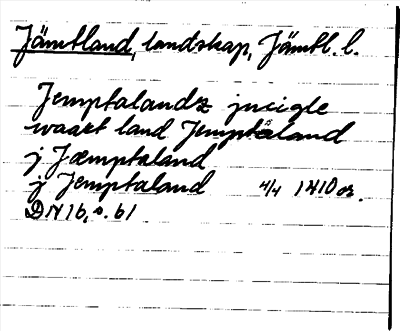 Jämtland, landskap, Jämtl. l.
Jemptalandz jncigle
waart land Jemptaland
j Jæmptaland
j Jemptaland 4/4 1410 or.
DN 16, s. 61